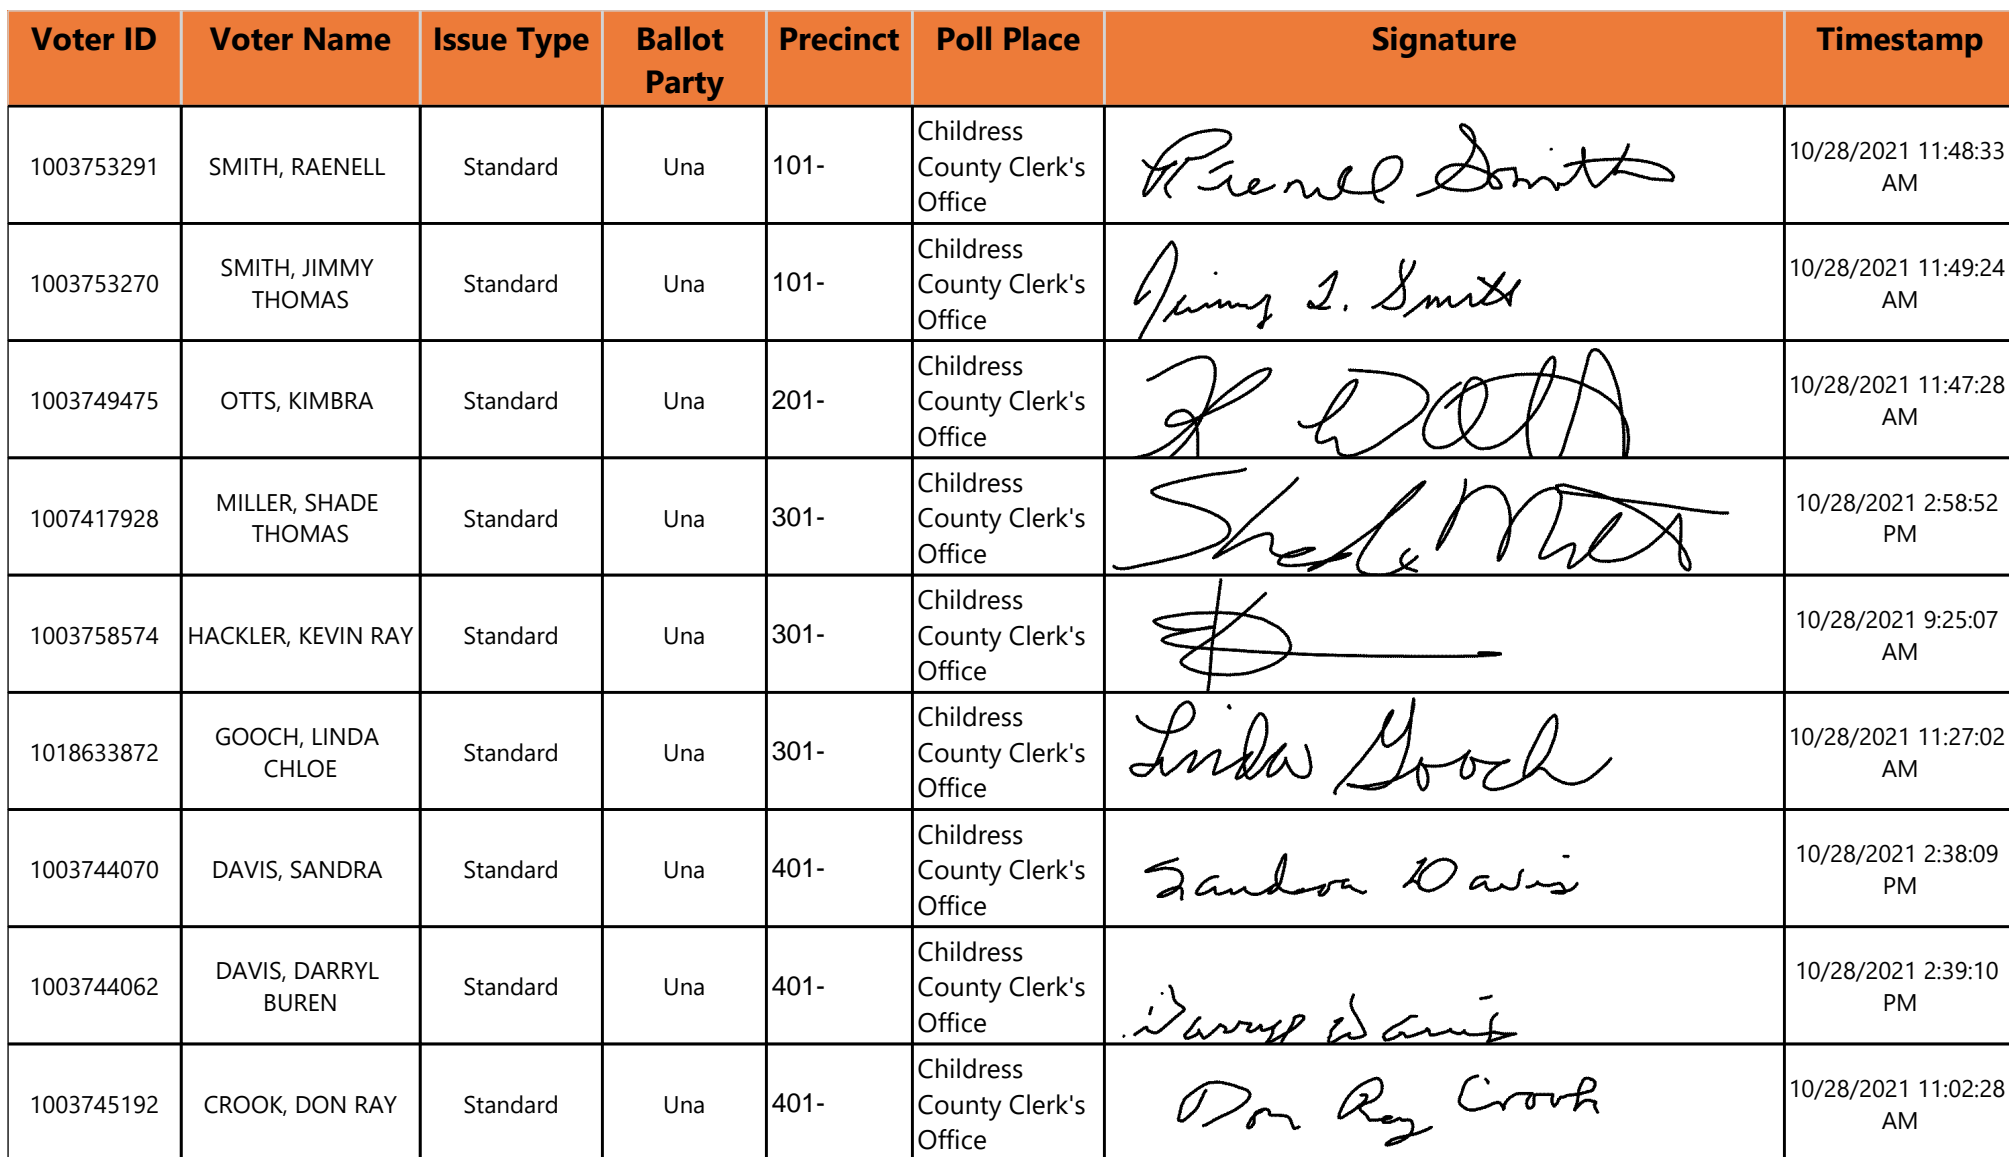 Voter ID Voter Name Issue Type Ballot Party Precinct Poll Place Signature Timestamp
1003753291 SMITH, RAENELL Standard Una 101- Childress County Clerk's Office Raenell Smith 10/28/2021 11:48:33 AM
1003753270 SMITH, JIMMY THOMAS Standard Una 101- Childress County Clerk's Office Jimmy T. Smith 10/28/2021 11:49:24 AM
1003749475 OTTS, KIMBRA Standard Una 201- Childress County Clerk's Office 10/28/2021 11:47:28 AM
1007417928 MILLER, SHADE THOMAS Standard Una 301- Childress County Clerk's Office 10/28/2021 2:58:52 PM
1003758574 HACKLER, KEVIN RAY Standard Una 301- Childress County Clerk's Office 10/28/2021 9:25:07 AM
1018633872 GOOCH, LINDA CHLOE Standard Una 301- Childress County Clerk's Office Linda Gooch 10/28/2021 11:27:02 AM
1003744070 DAVIS, SANDRA Standard Una 401- Childress County Clerk's Office Sandra Davis 10/28/2021 2:38:09 PM
1003744062 DAVIS, DARRYL BUREN Standard Una 401- Childress County Clerk's Office Darryl Davis 10/28/2021 2:39:10 PM
1003745192 CROOK, DON RAY Standard Una 401- Childress County Clerk's Office Don Ray Crook 10/28/2021 11:02:28 AM